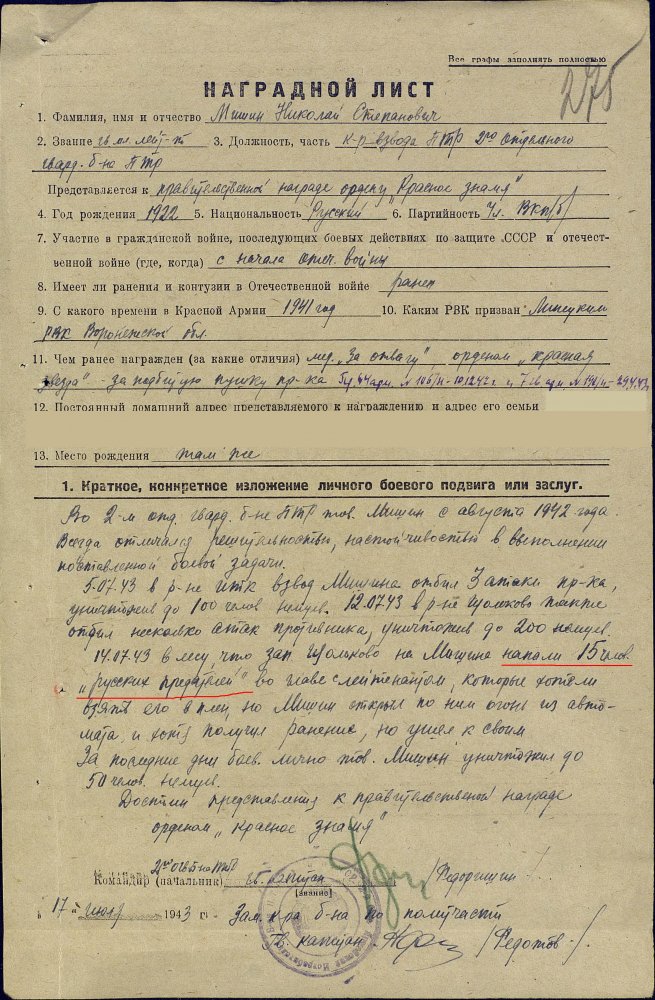 Все графы заполнять полностью
275
НАГРАДНОЙ ЛИСТ
1. Фамилия, имя и отчество Мишин Николай Степанович
2. Звание гв. мл. лейт-т 3. Должность, часть к-р взвода ПТР 2го отдельного
гвард. б-на ПТР
Представляется к правительственной награде ордену „Красное знамя“
4. Год рождения 1922 5. Национальность Русский 6. Партийность чл. ВКП(б)
7. Участие в гражданской войне, последующих боевых действиях по защите СССР и отечест-
венной войне (где, когда) с начала отеч. войны
8. Имеет ли ранения и контузии в Отечественной войне ранен
9. С какого времени в Красной Армии 1941 год 10. Каким РВК призван Липецким
РВК Воронежской обл.
11. Чем ранее награжден (за какие отличия) мед. „За отвагу“ орденом „красная
звезда“ - за подбитую пушку пр-ка
12. Постоянный домашний адрес представляемого к награждению и адрес его семьи
13. Место рождения там же
1. Краткое, конкретное изложение личного боевого подвига или заслуг.
Во 2-м отд. гвард. б-не ПТР тов. Мишин с августа 1942 года.
Всегда отличался решительностью, настойчивостью в выполнении
поставленной боевой задачи.
5.07.43 в р-не взвод Мишина отбил 3 атаки пр-ка,
уничтожив до 100 челов. немцев. 12.07.43 в р-не также
отбил несколько атак противника, уничтожив до 200 немцев.
14.07.43 в лесу, что зап. на Мишина напали 15 челов.
„русских предателей“ во главе с лейтенантом, которые хотели
взять его в плен, но Мишин открыл по ним огонь из авто-
мата, и хотя получил ранение, но ушел к своим
За последние дни боев лично тов. Мишин уничтожил до
50 челов. немцев.
Достоин представления к правительственной награде
орденом „красное знамя“
Командир (начальник) гв. капитан
(звание)
17 июля 1943 г. Зам. к-ра б-на по политчасти
Гв. капитан /Федотов/